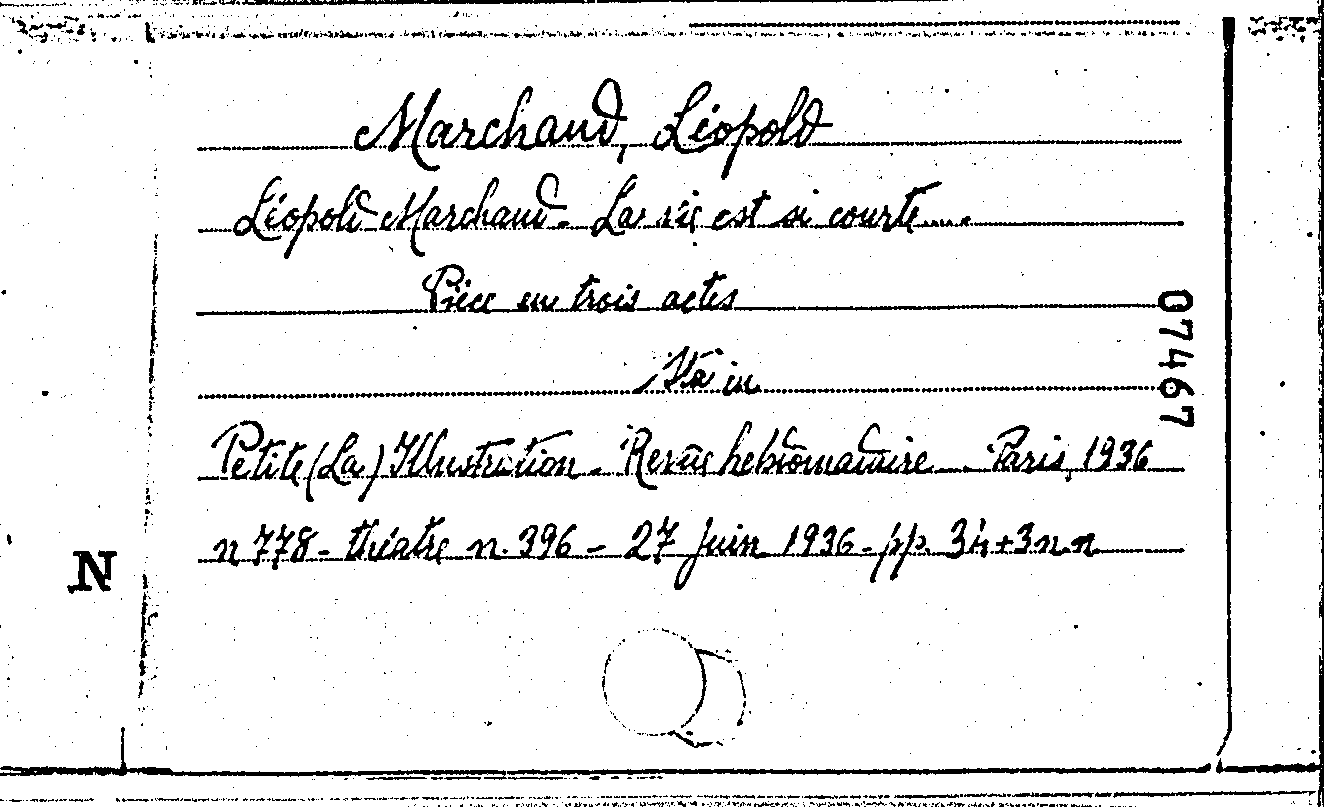 Marchand, Léopold
Léopold Marchand - La vie est si courte....
Pièce en trois actes
Sta in
Petite (La) Illustration - Revue hebdomadaire - Paris, 1936
n 778 - théatre n. 396 - 27 Juin 1936 - pp. 34+3nn
07467
N